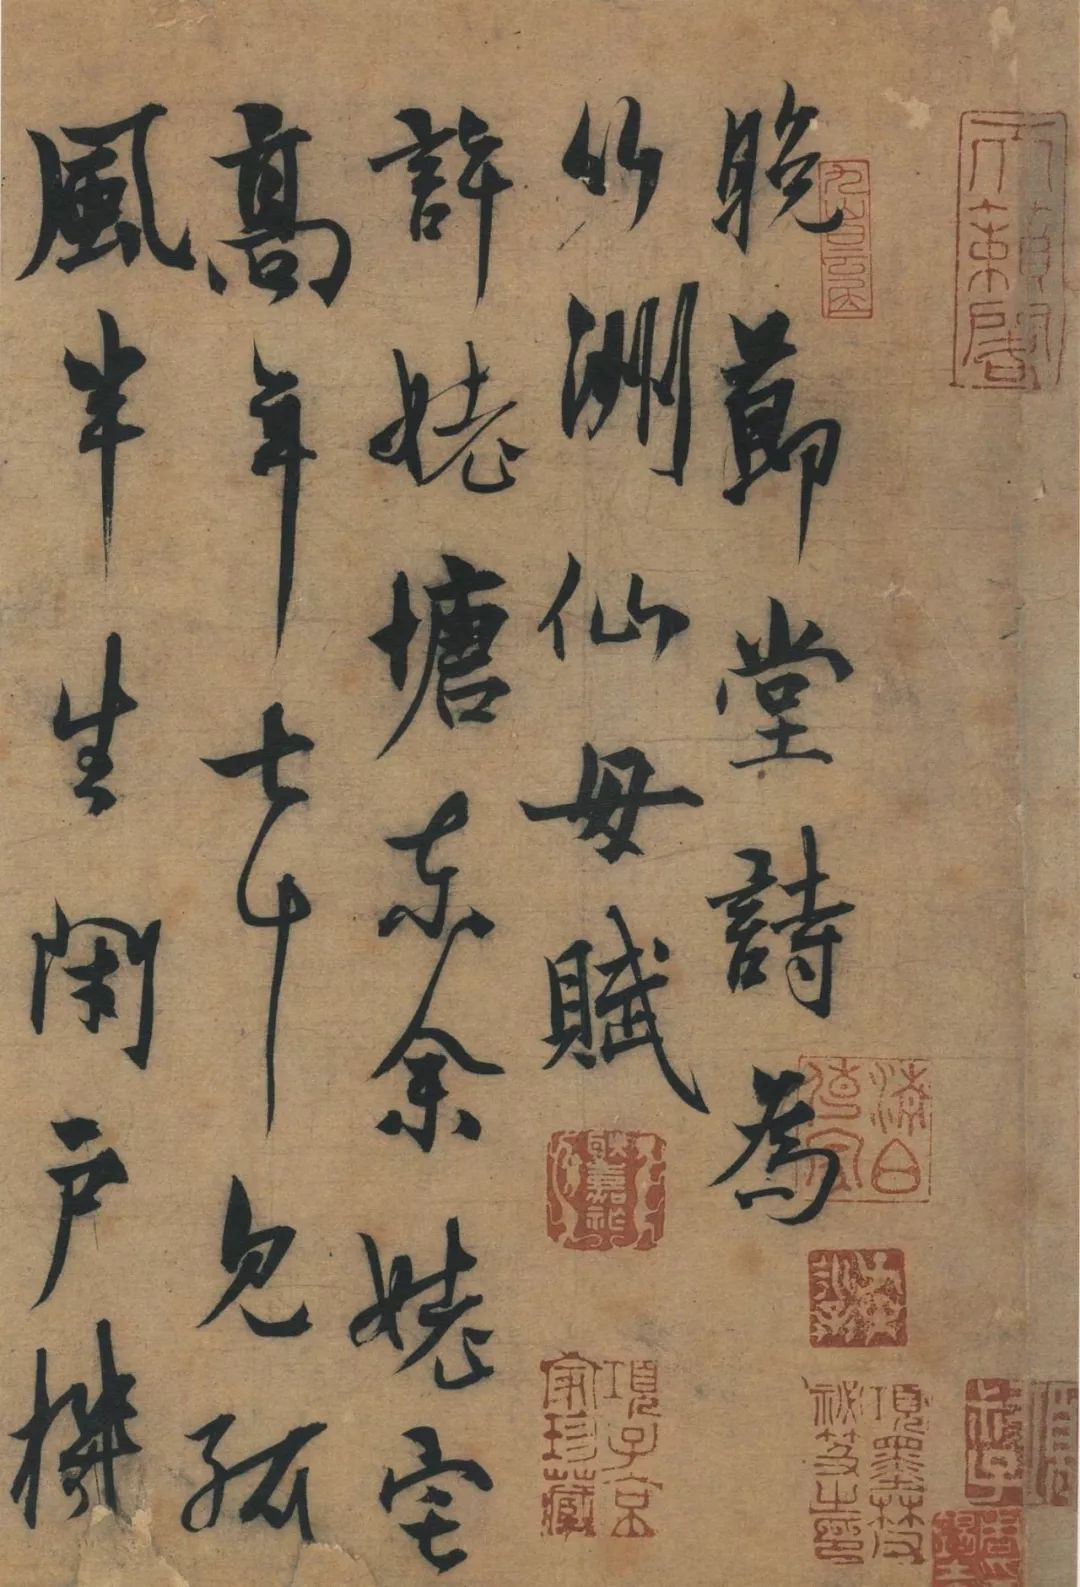 天籟閣
晚節堂詩為
竹洲仙母賦
許姥塘東余姥宅
高年七十見孤
風半生閉戶
項子京家珍藏
項墨林父祕笈之印